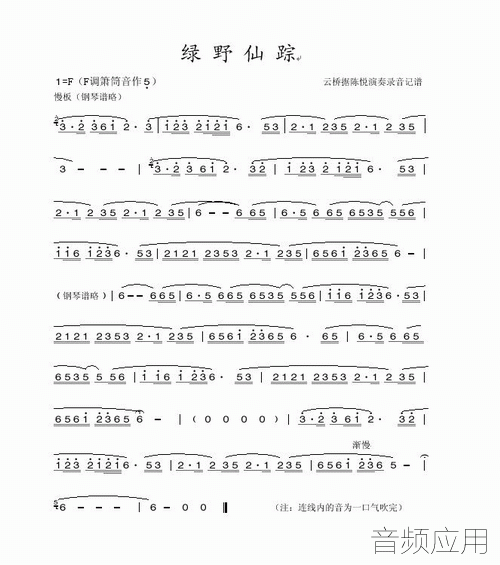 绿野仙踪
1=F（F调箫筒音作5）
云桥据陈悦演奏录音记谱
慢板（钢琴谱略）
3·2 361 2· 3 | 123 2121 6· 53 | 2·1 235 2·1 235
3 - - - | 3·2 361 2· 32 | 123 2121 6· 535
2·1 235 2·1 235 | 6 - - 665 | 6·5 665 356535 556
116 1236·53 | 2121 2353 2·1 235 | 6561 2365 6 -
（钢琴谱略） | 6 - - 665 | 6·5 665 356535 556 | 116 1236·53
2121 2353 2·1 235 | 6561 2365 6· 65 | 6·5 6535
6535 5 56 | 116 1236· 53 | 2121 2353 2·1 235
6561 2365 6 - | (0 0 0 0) | 3·2 361 2· 32
渐慢
123 2121 6· 53 | 2·1 235 2·1 235 | 6561 236 5 -
6 - - - | 6 - 0 0
（注：连线内的音为一口气吹完）
音频应用